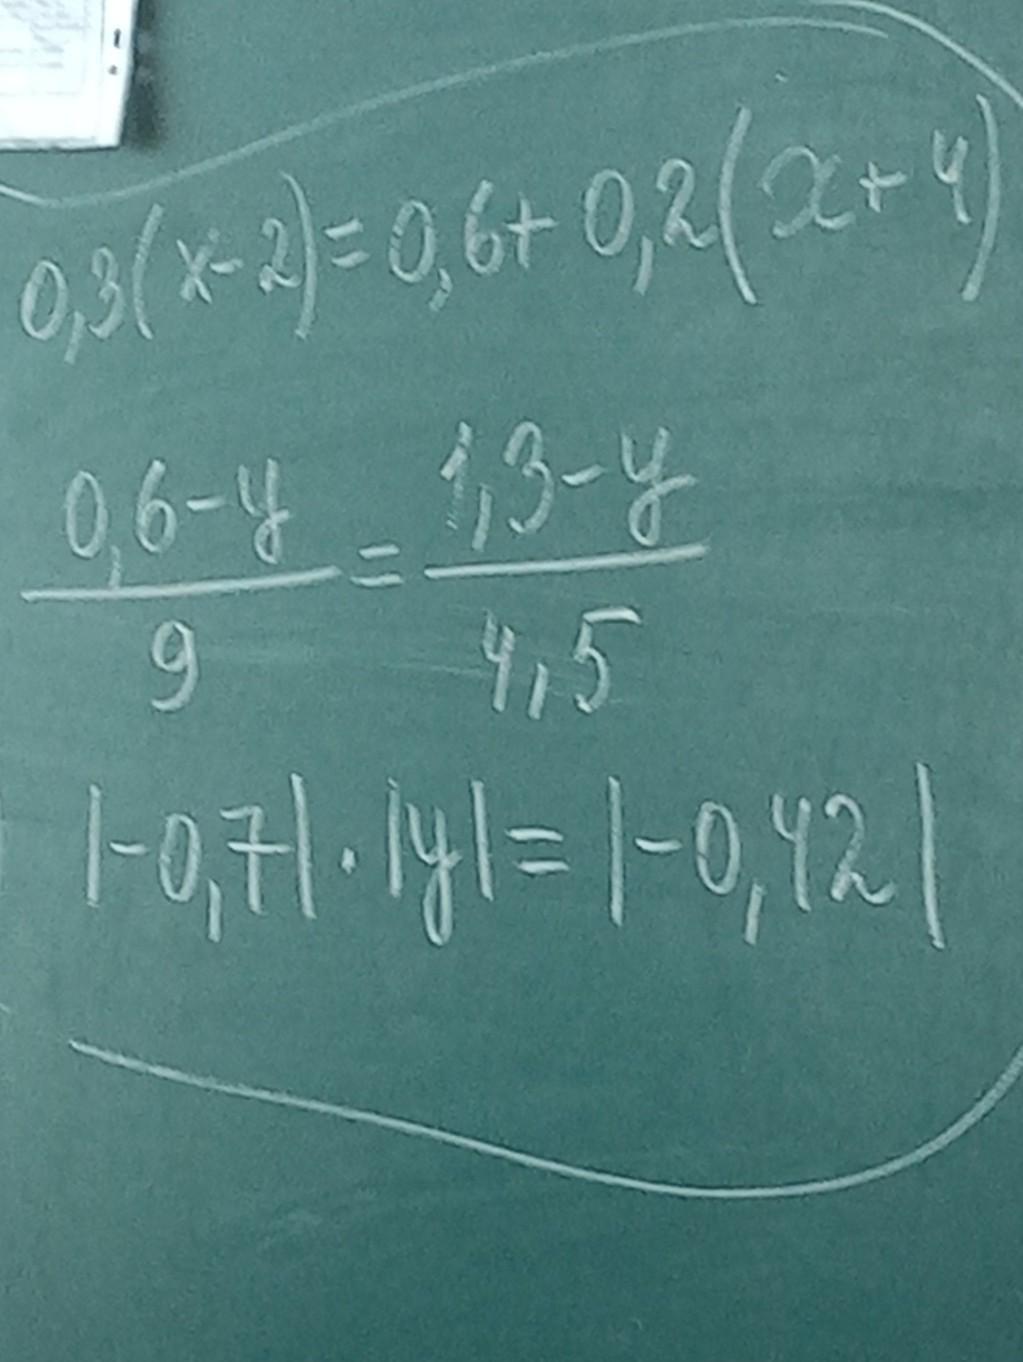 0,3(x-2)=0,6+0,2(x+4)
0,6-y/9=1,3-y/4,5
|-0,7|·|y|=|-0,42|